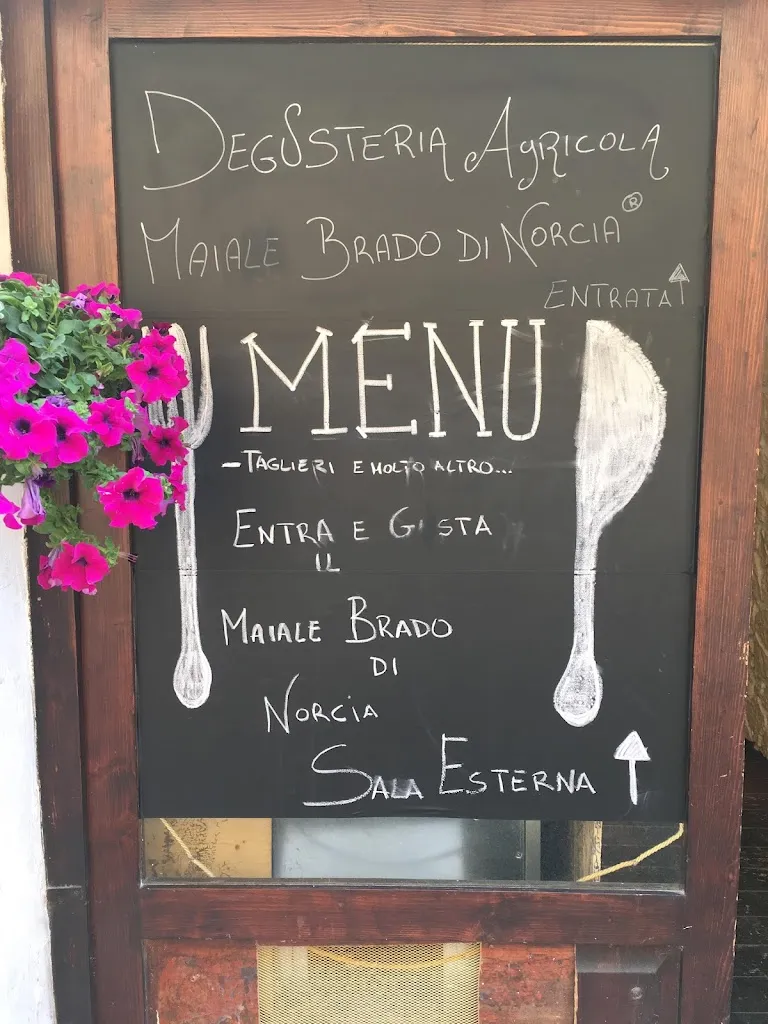 DEGUSTERIA AGRICOLA
MAIALE BRADO DI NORCIA®
ENTRATA ↑
MENU
- TAGLIERI E MOLTO ALTRO...
ENTRA E G STA
IL
MAIALE BRADO
DI
NORCIA
SALA ESTERNA ↑